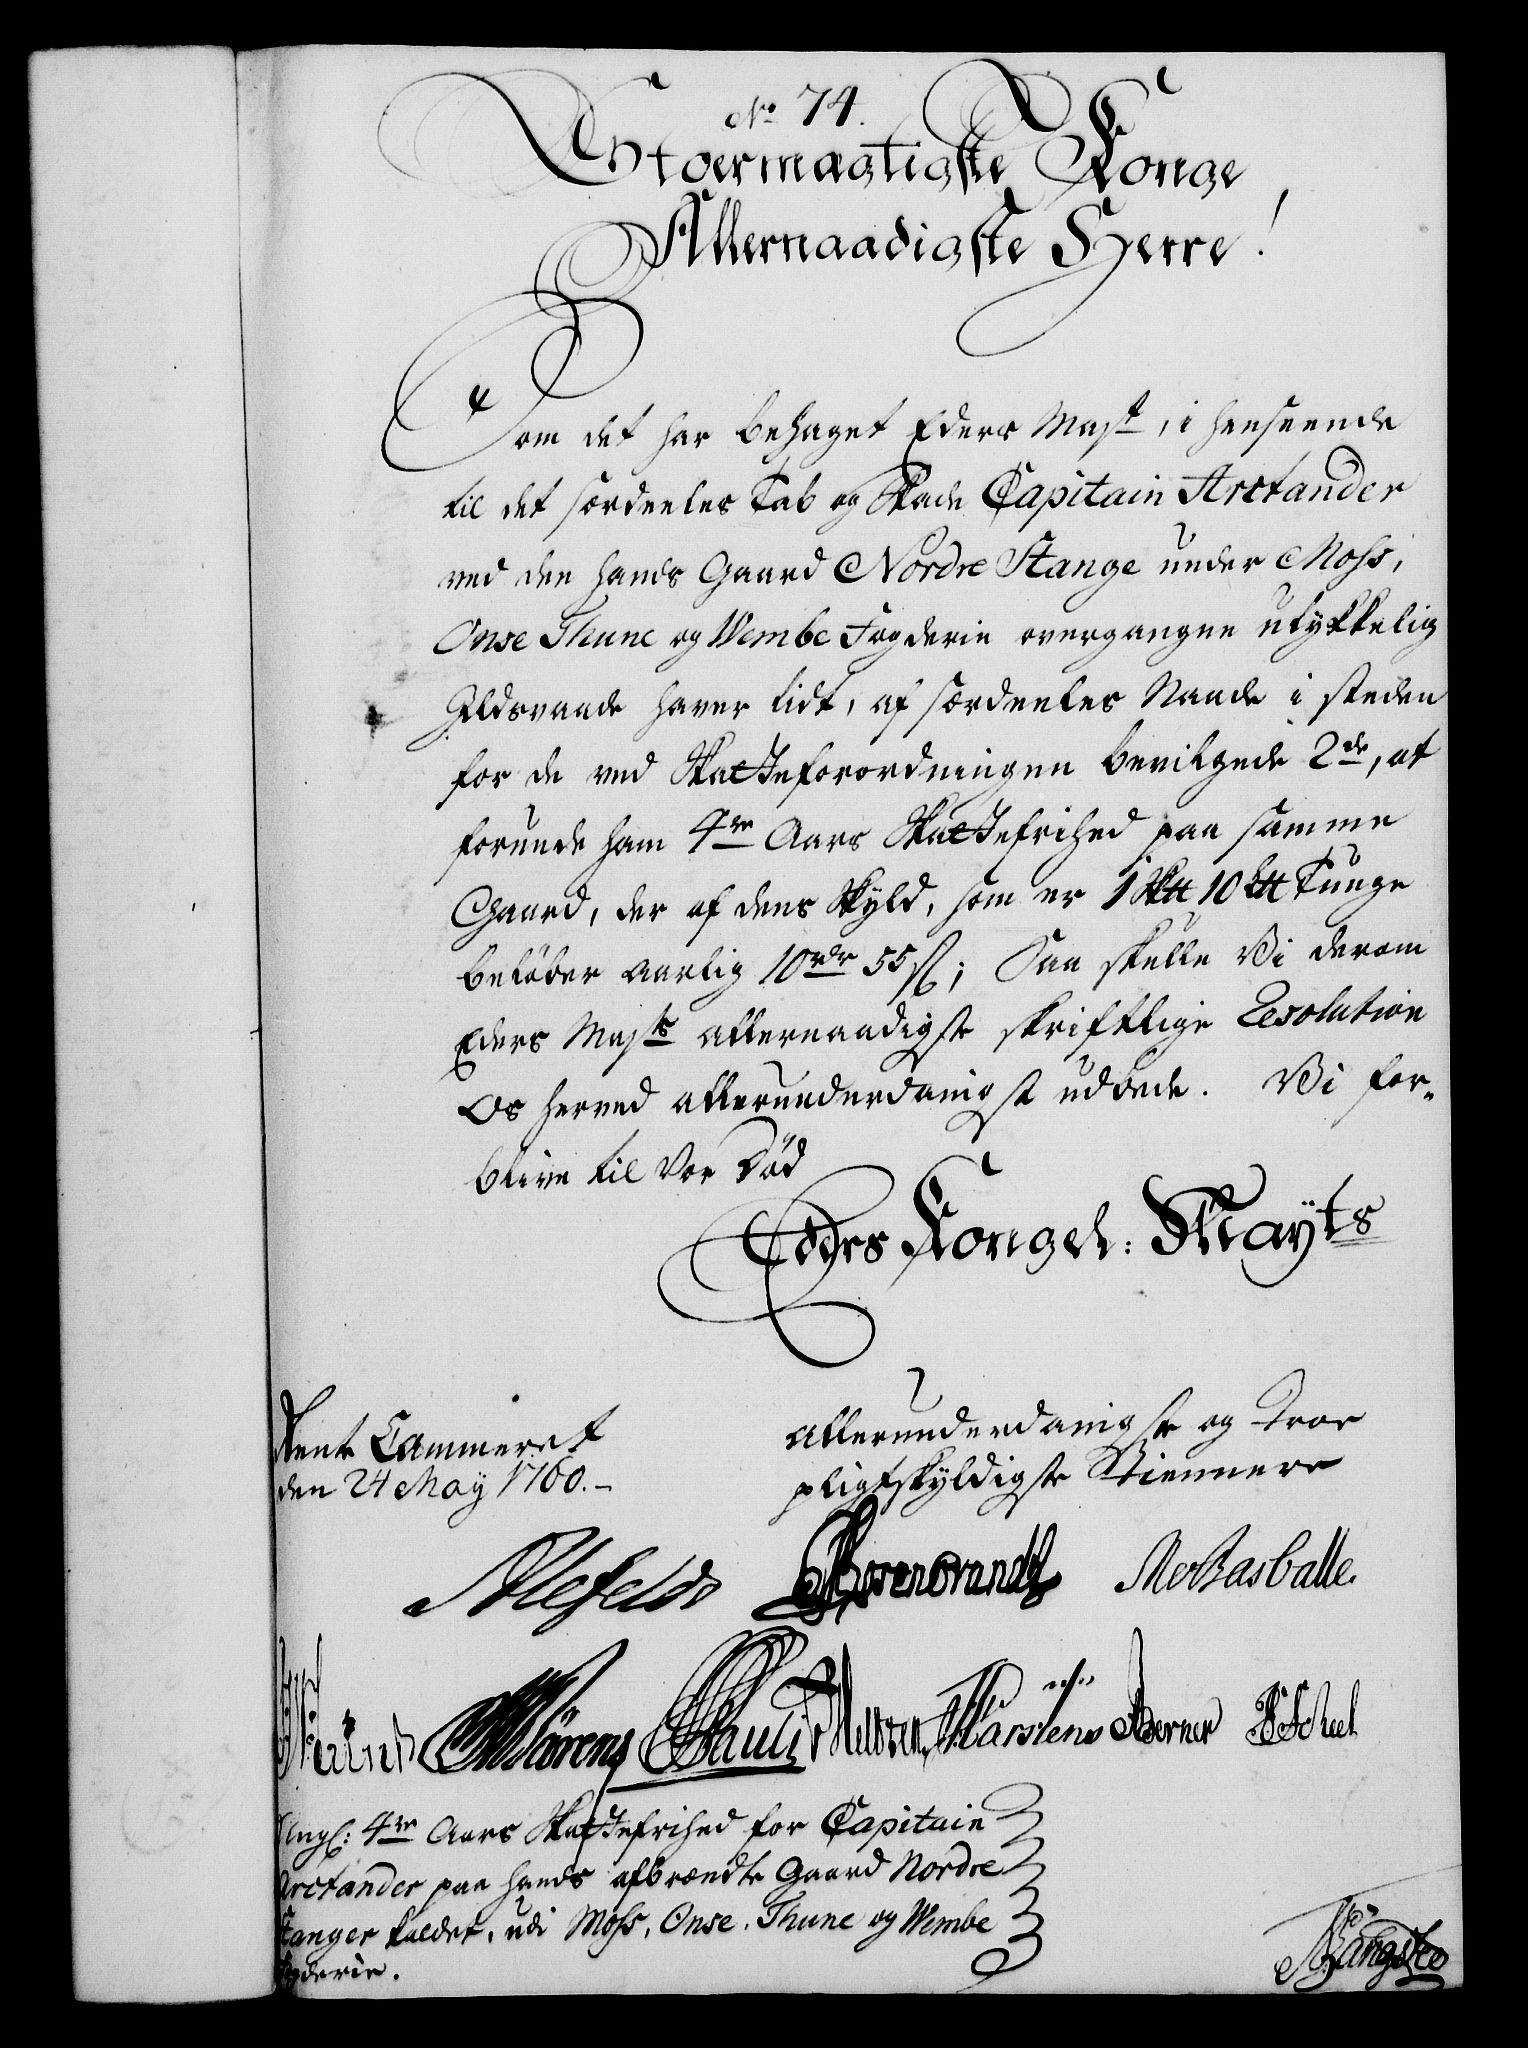 No 74.
Stoermægtigste Konge
Allernaadigste Herre!
Som det har behaget Eders Mayt, i henseende
til det særdeeles Tab og Skade Capitain Arctander
ved den hands Gaard Nordre Stange under Moss,
Onse Thune og Wembe Fogderie overgangne ulykkelig
Ildsvaade haver lidt, af særdeeles Naade i steden
for de ved Skatteforordningen bevilgede 2de, at
forunde ham 4re Aars Skattefrihed paa samme
Gaard, der af dens Skyld, som er 1 Sk℔ 10 L℔ Tunge
beløber aarlig 10rdr 55 s; Saa skulle Vi derom
Eders Mayts allernaadigste skriftlige Resolution
Os herved allerunderdanigst udbede. Vi for-
blive til Vor Død
Eders Kongel: Mayts
Rente Cammeret
den 24 May 1760.-
allerunderdanigste og Troe
pligtskyldigste Tiennere
Alefeldt Rosenbrandt Rasballe.
Mörens Pauli Karstens Berner Scheel
Ang: 4re Aars Skattefrihed for Capitain
Arctander paa hands afbrændte Gaard Nordre
Stanger kaldet, udi Moss, Onse, Thune og Wembe
Fogderie.
Bangsteb